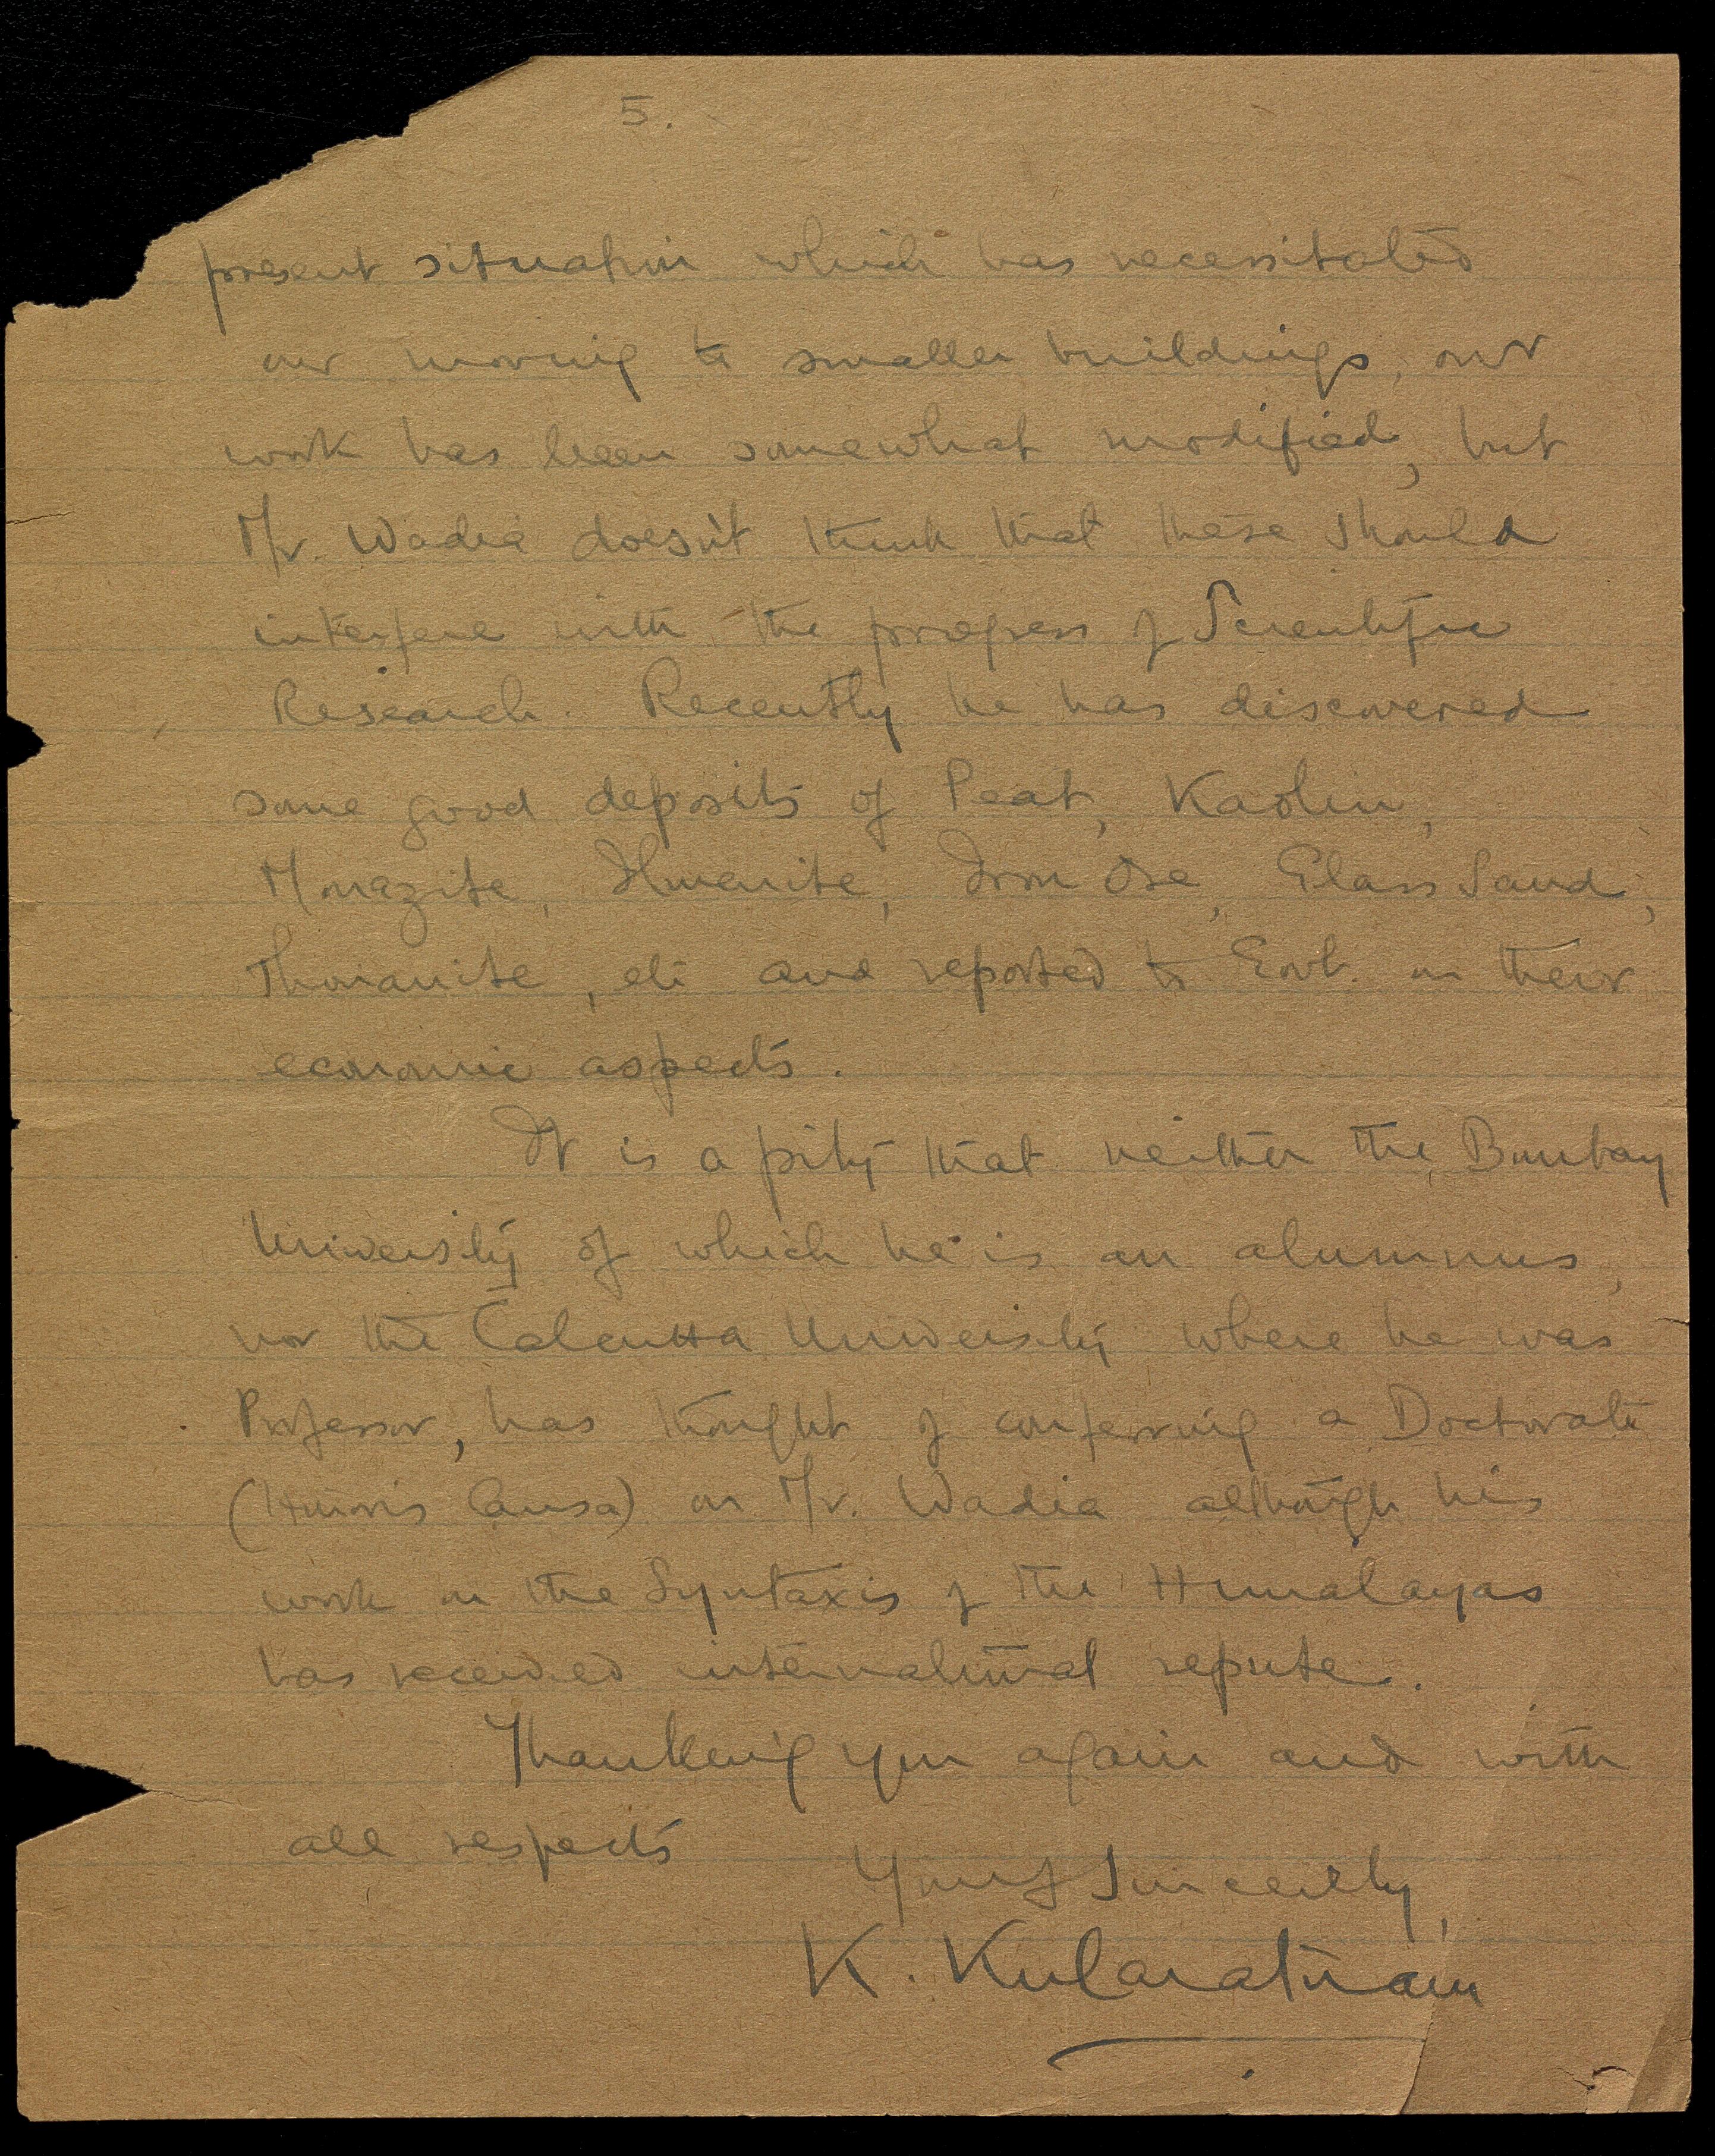 5.
present situation which has necessitated
our moving to smaller buildings, our
work has been somewhat modified, but
Mr. Wadia doesn't think that these should
interfere with the progress of Scientific
Research. Recently he has discovered
some good deposits of Peat, Kaolin,
Monazite, Ilmenite, Iron Ore, Glass Sand,
Thorianite, etc and reported to Govt. on their
economic aspects.
It is a pity that neither the Bombay
University of which he is an alumnus,
nor the Calcutta University where he was
Professor, has thought of conferring a Doctorate
(Honoris Causa) on Mr. Wadia although his
work on the Syntaxis of the Himalayas
has received international repute.
Thanking you again and with
all respects
Yours Sincerely,
K. Kularatnam